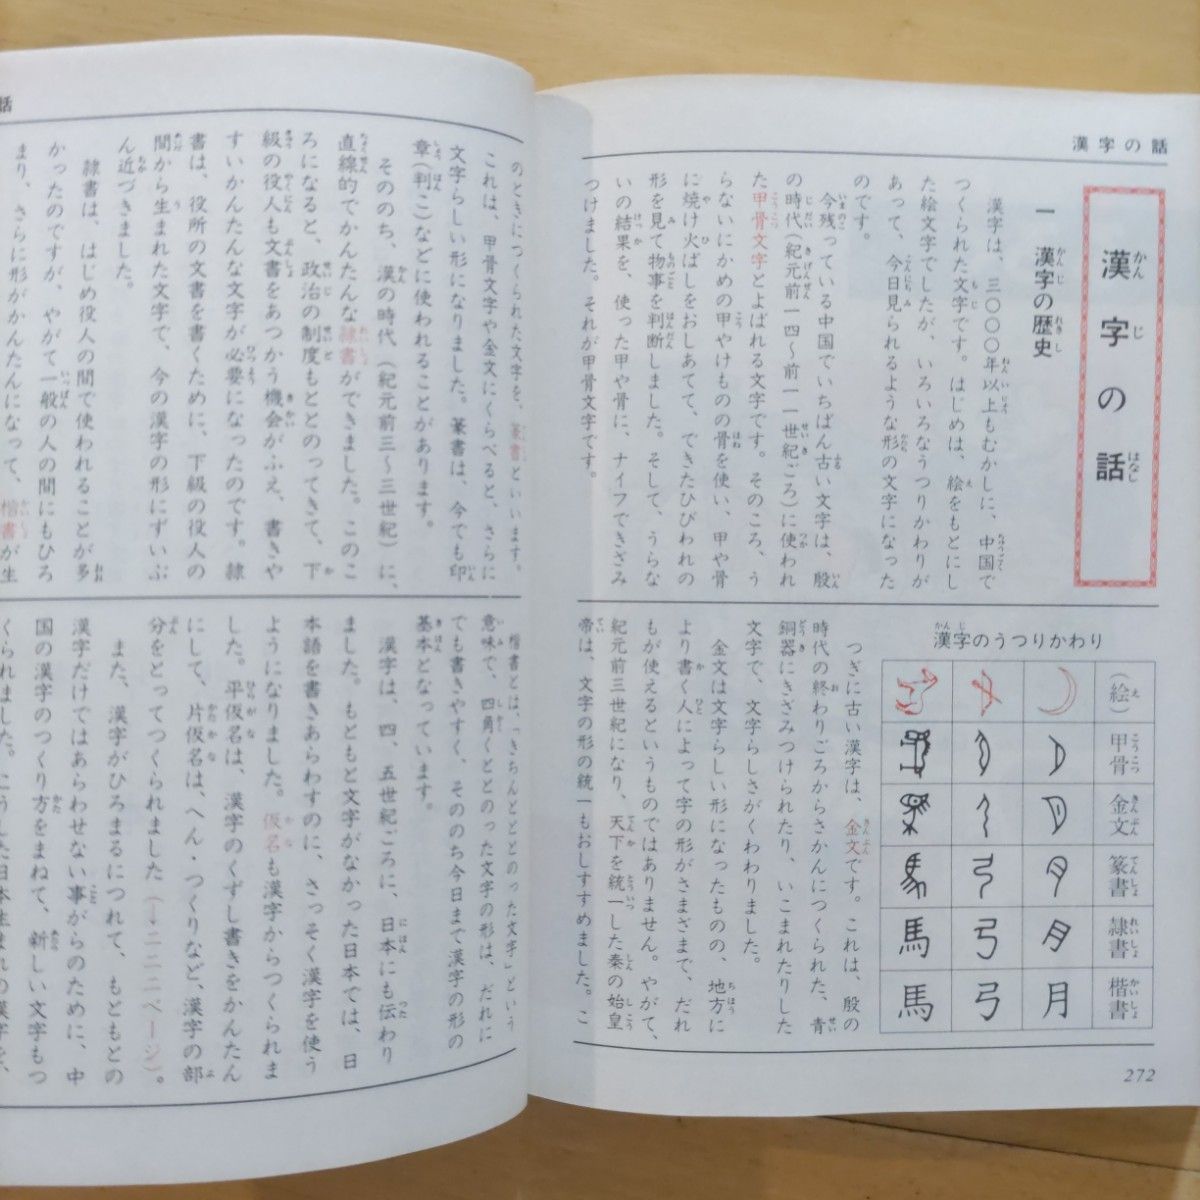 漢字の話
漢字の話
一 漢字の歴史
漢字は、三〇〇〇年以上もむかしに、中国で
つくられた文字です。はじめは、絵をもとにし
た絵文字でしたが、いろいろなうつりかわりが
あって、今日見られるような形の文字になった
のです。
今残っている中国でいちばん古い文字は、殷
の時代(紀元前一四〜前一一世紀ごろ)に使われ
た甲骨文字とよばれる文字です。そのころ、う
らないにかめの甲やけものの骨を使い、甲や骨
に焼け火ばしをおしあてて、できたひびわれの
形を見て物事を判断しました。そして、うらな
いの結果を、使った甲や骨に、ナイフできざみ
つけました。それが甲骨文字です。
漢字のうつりかわり
(絵)
甲骨
金文
篆書
隷書
楷書
月
弓
馬
つぎに古い漢字は、金文です。これは、殷の
時代の終わりごろからさかんにつくられた、青
銅器にきざみつけられたり、いこまれたりした
文字で、文字らしさがくわわりました。
金文は文字らしい形になったものの、地方に
より書く人によって字の形がさまざまで、だれ
もが使えるというものではありません。やがて、
紀元前三世紀になり、天下を統一した秦の始皇
帝は、文字の形の統一もおしすすめました。こ
272
話
のときにつくられた文字を、篆書といいます。
これは、甲骨文字や金文にくらべると、さらに
文字らしい形になりました。篆書は、今でも印
章(判こ)などに使われることがあります。
そののち、漢の時代(紀元前三〜三世紀)に、
直線的でかんたんな隷書ができました。このこ
ろになると、政治の制度もととのってきて、下
級の役人も文書をあつかう機会がふえ、書きや
すいかんたんな文字が必要になったのです。隷
書は、役所の文書を書くために、下級の役人の
間から生まれた文字で、今の漢字の形にずいぶ
ん近づきました。
隷書は、はじめ役人の間で使われることが多
かったのですが、やがて一般の人の間にもひろ
まり、さらに形がかんたんになって、楷書が生
楷書とは、「きちんとととのった文字」という
意味で、四角くととのった文字の形は、だれに
でも書きやすく、そののち今日まで漢字の形の
基本となっています。
漢字は、四、五世紀ごろに、日本にも伝わり
ました。もともと文字がなかった日本では、日
本語を書きあらわすのに、さっそく漢字を使う
ようになりました。仮名も漢字からつくられま
した。平仮名は、漢字のくずし書きをかんたん
にして、片仮名は、へん・つくりなど、漢字の部
分をとってつくられました(→二二二ページ)。
また、漢字がひろまるにつれて、もともとの
漢字だけではあらわせない事がらのために、中
国の漢字のつくり方をまねて、新しい文字もつ
くられました。こうした日本生まれの漢字を、